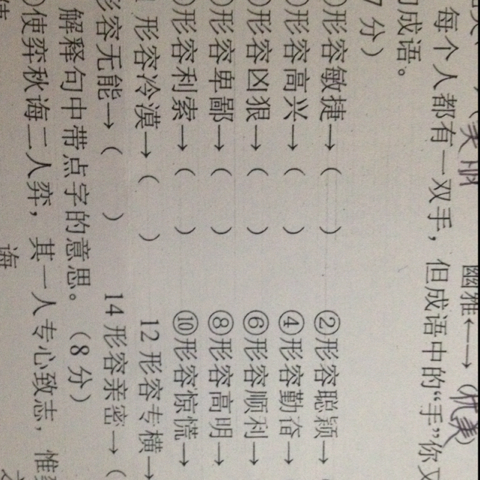 （美丽 幽雅←→（优美）
每个人都有一双手，但成语中的“手”你又
成语。
7 分）
形容敏捷→（　　） ②形容聪颖→（
形容高兴→（　　） ④形容勤奋→
形容凶狠→（　　） ⑥形容顺利→
形容卑鄙→（　　） ⑧形容高明→
形容利索→（　　） ⑩形容惊慌→
形容冷漠→（　　） 12 形容专横→
形容无能→（　　） 14 形容亲密→（
解释句中带点字的意思。（8 分）
使弈秋诲二人弈，其一人专心致志，惟
诲